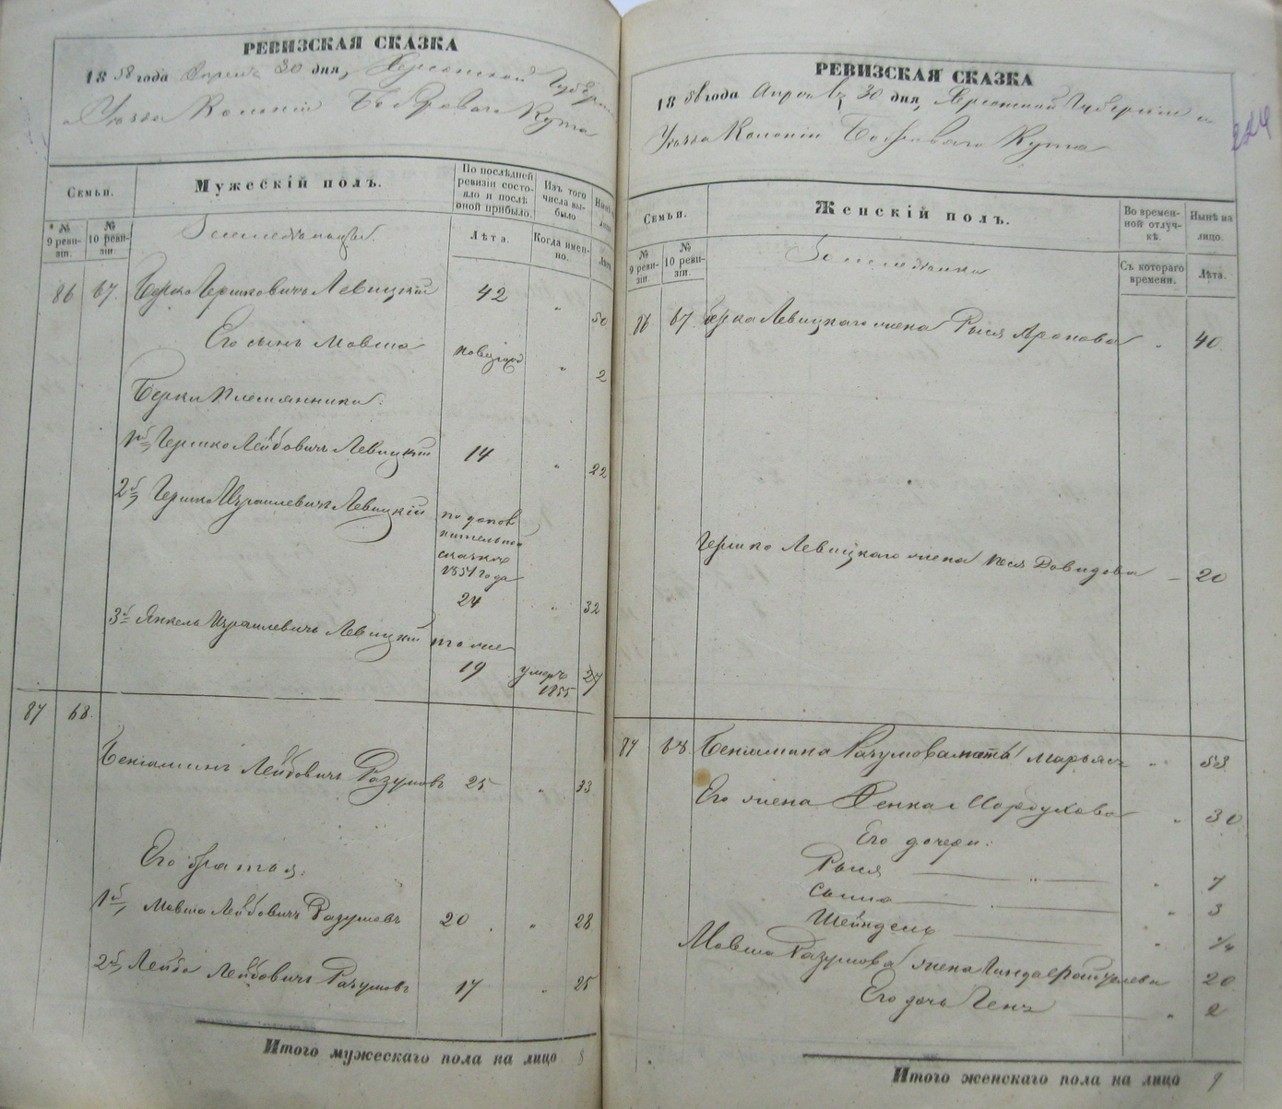 РЕВИЗСКАЯ СКАЗКА
18 58 года Апреля 30 дня, Херсонской Губернии
Уезда Колонии Боброваго Кута
Семьи.
Мужескій полъ.
По послѣдней ревизіи состояло и послѣ оной прибыло.
Изъ того числа выбыло
Нынѣ на лицо
№ 9 ревизіи.
№ 10 ревизіи.
Лѣта.
Когда именно.
Лѣта
Земледельцы.
86 67. Берко Гершковичъ Левицкій 42 " 50
Его сынъ Мовша " 2
Берки племянники:
1й Гершко Лейбовичъ Левицкій 14 " 22
2й Гершко Израилевичъ Левицкій по дополнительной сказкѣ 1851 года
24 " 32
3й Янкель Израилевичъ Левицкій тоже
19 умеръ 1855 27
87 68.
Беніаминъ Лейбовичъ Разумовъ 25 " 33
Его братья:
1й Мовша Лейбовичъ Разумовъ 20 " 28
2й Лейба Лейбовичъ Разумовъ 17 " 25
Итого мужескаго пола на лицо 8
РЕВИЗСКАЯ СКАЗКА
18 58 года Апреля 30 дня, Херсонской Губерніи
Уезда Колоніи Боброваго Кута
224
Семьи.
Женскій полъ.
Во временной отлучкѣ.
Нынѣ на лицо.
№ 9 ревизіи.
№ 10 ревизіи.
Съ котораго времени.
Лѣта.
86 67. Берка Левицкаго жена Рыся Аронова " 40
Гершко Левицкаго жена Давидова – 20
87 68. Беніамина Разумова мать Марьясъ " 53
Его жена Генка Мордухова " 30
Его дочери:
Рыся " " 7
" 3
Шейндель " 1/4
Мовша Разумова жена 20
Его дочь Геня " 2
Итого женскаго пола на лицо 9